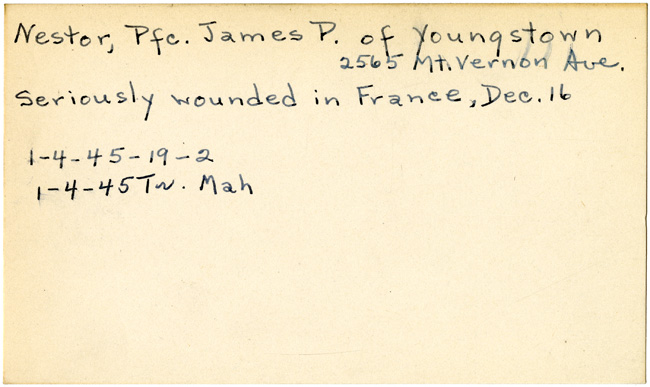 Nestor, Pfc. James P. of Youngstown
2565 Mt. Vernon Ave.
Seriously wounded in France, Dec. 16
1-4-45-19-2
1-4-45 Tv. Mah